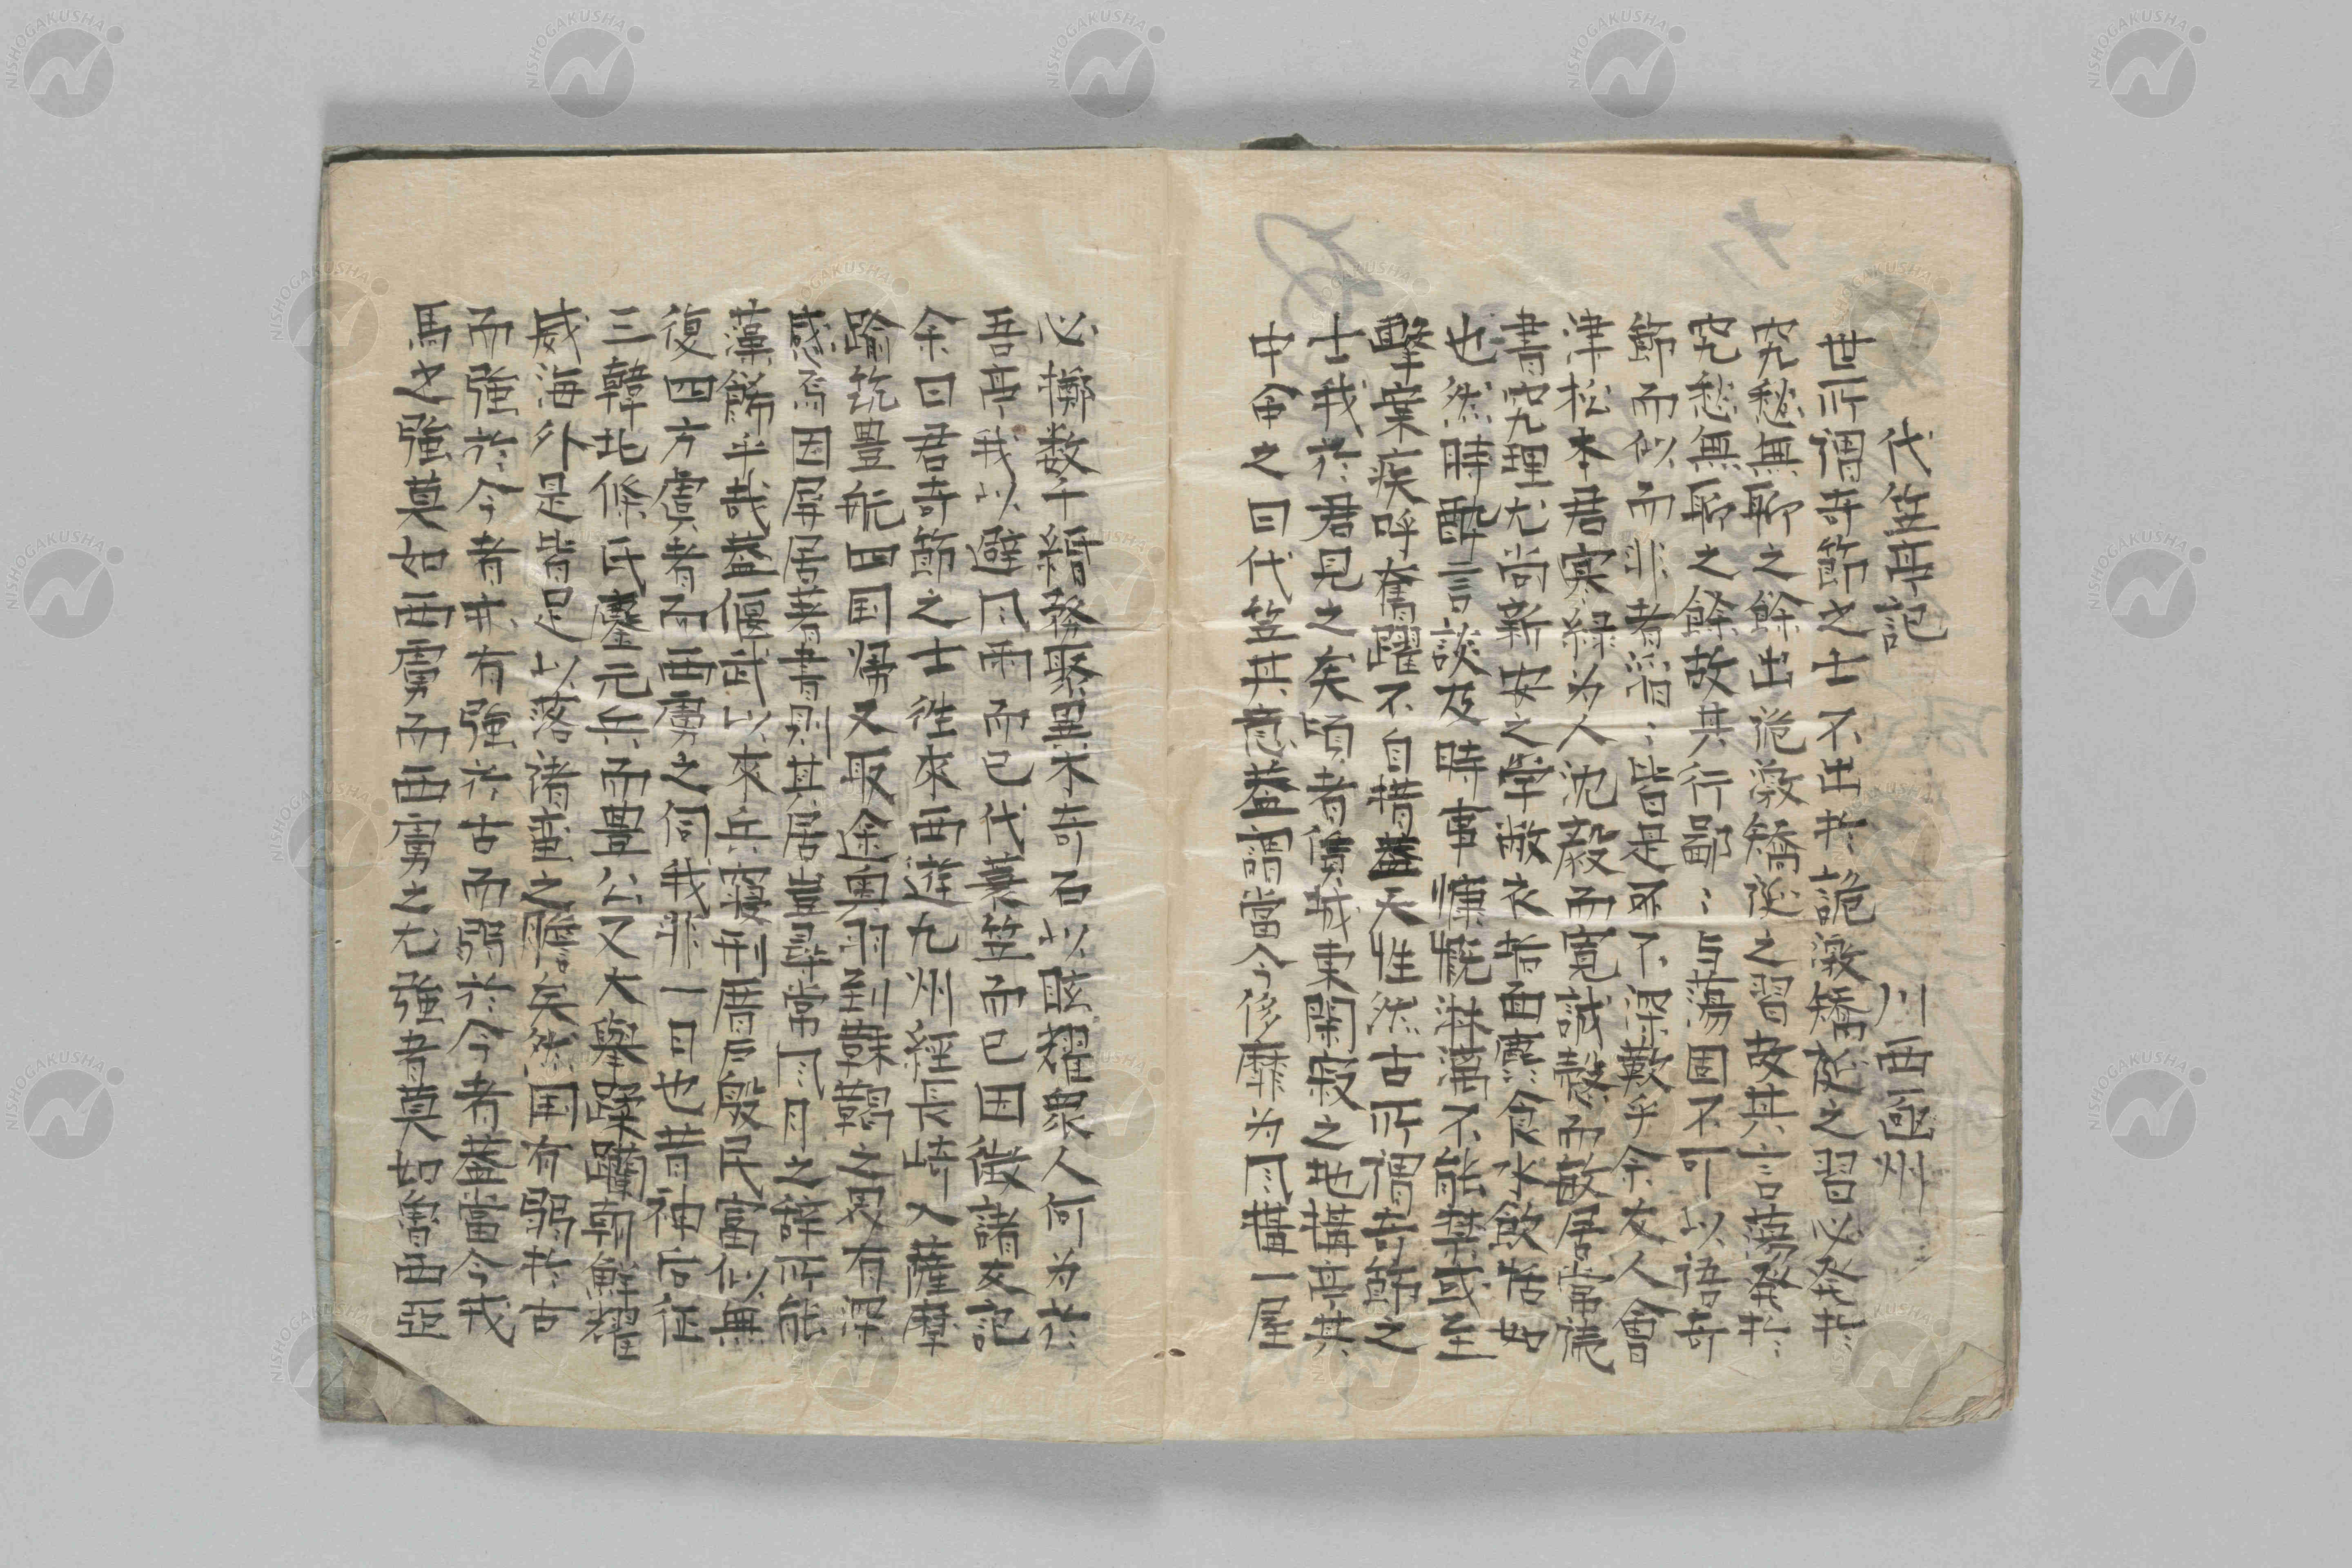 代笠亭記　川西函州
世所謂奇節之士不出於詭激矯之習必發於
究愁無聊之餘出詭激矯從之習故其言蕩發於
究愁無聊之餘故其行鄙〻与蕩固不可以語奇
節而似而非者滔〻皆是不深歎乎余友人會
津松本君寒緑为人沈毅而寬誠慤而敏居常
書究理尤尚新安之学敝衣苦面麤食水飲恬如
也然時酔言談及時事慷慨淋漓不能禁或至
擊案疾呼奮躍不自措蓋天性然古所謂奇節之
士我於君見之矣頃者僦城東関段之地搆亭其
中命之曰代笠其意蓋謂當今侈靡为風搆一屋
必擲数千緡務聚異木奇石以眩耀衆人何为於
吾亭我以避風雨而已代蓑笠而已因徴諸友記
余曰君奇節之士徃來西遊九州經長崎入薩摩
踰筑豊航四国帰又取途奥羽到蝦夷之界有深
感焉因屏居著書則其居豈尋常風月之辞所能
藻餙乎哉蓋偃武以來兵寢刑厝戸殷民富似無
復四方虞者而西虜之伺我非一日也昔神后征
三韓北條氏鏖元兵而豊公又大擧蹂躪朝鮮耀
威海外是皆足以落諸蛮之膽矣然国有弱於古
而強於今者亦有強於古而弱於今者蓋當今戎
馬之強莫如西虜而西虜之尤強者莫如魯西亞